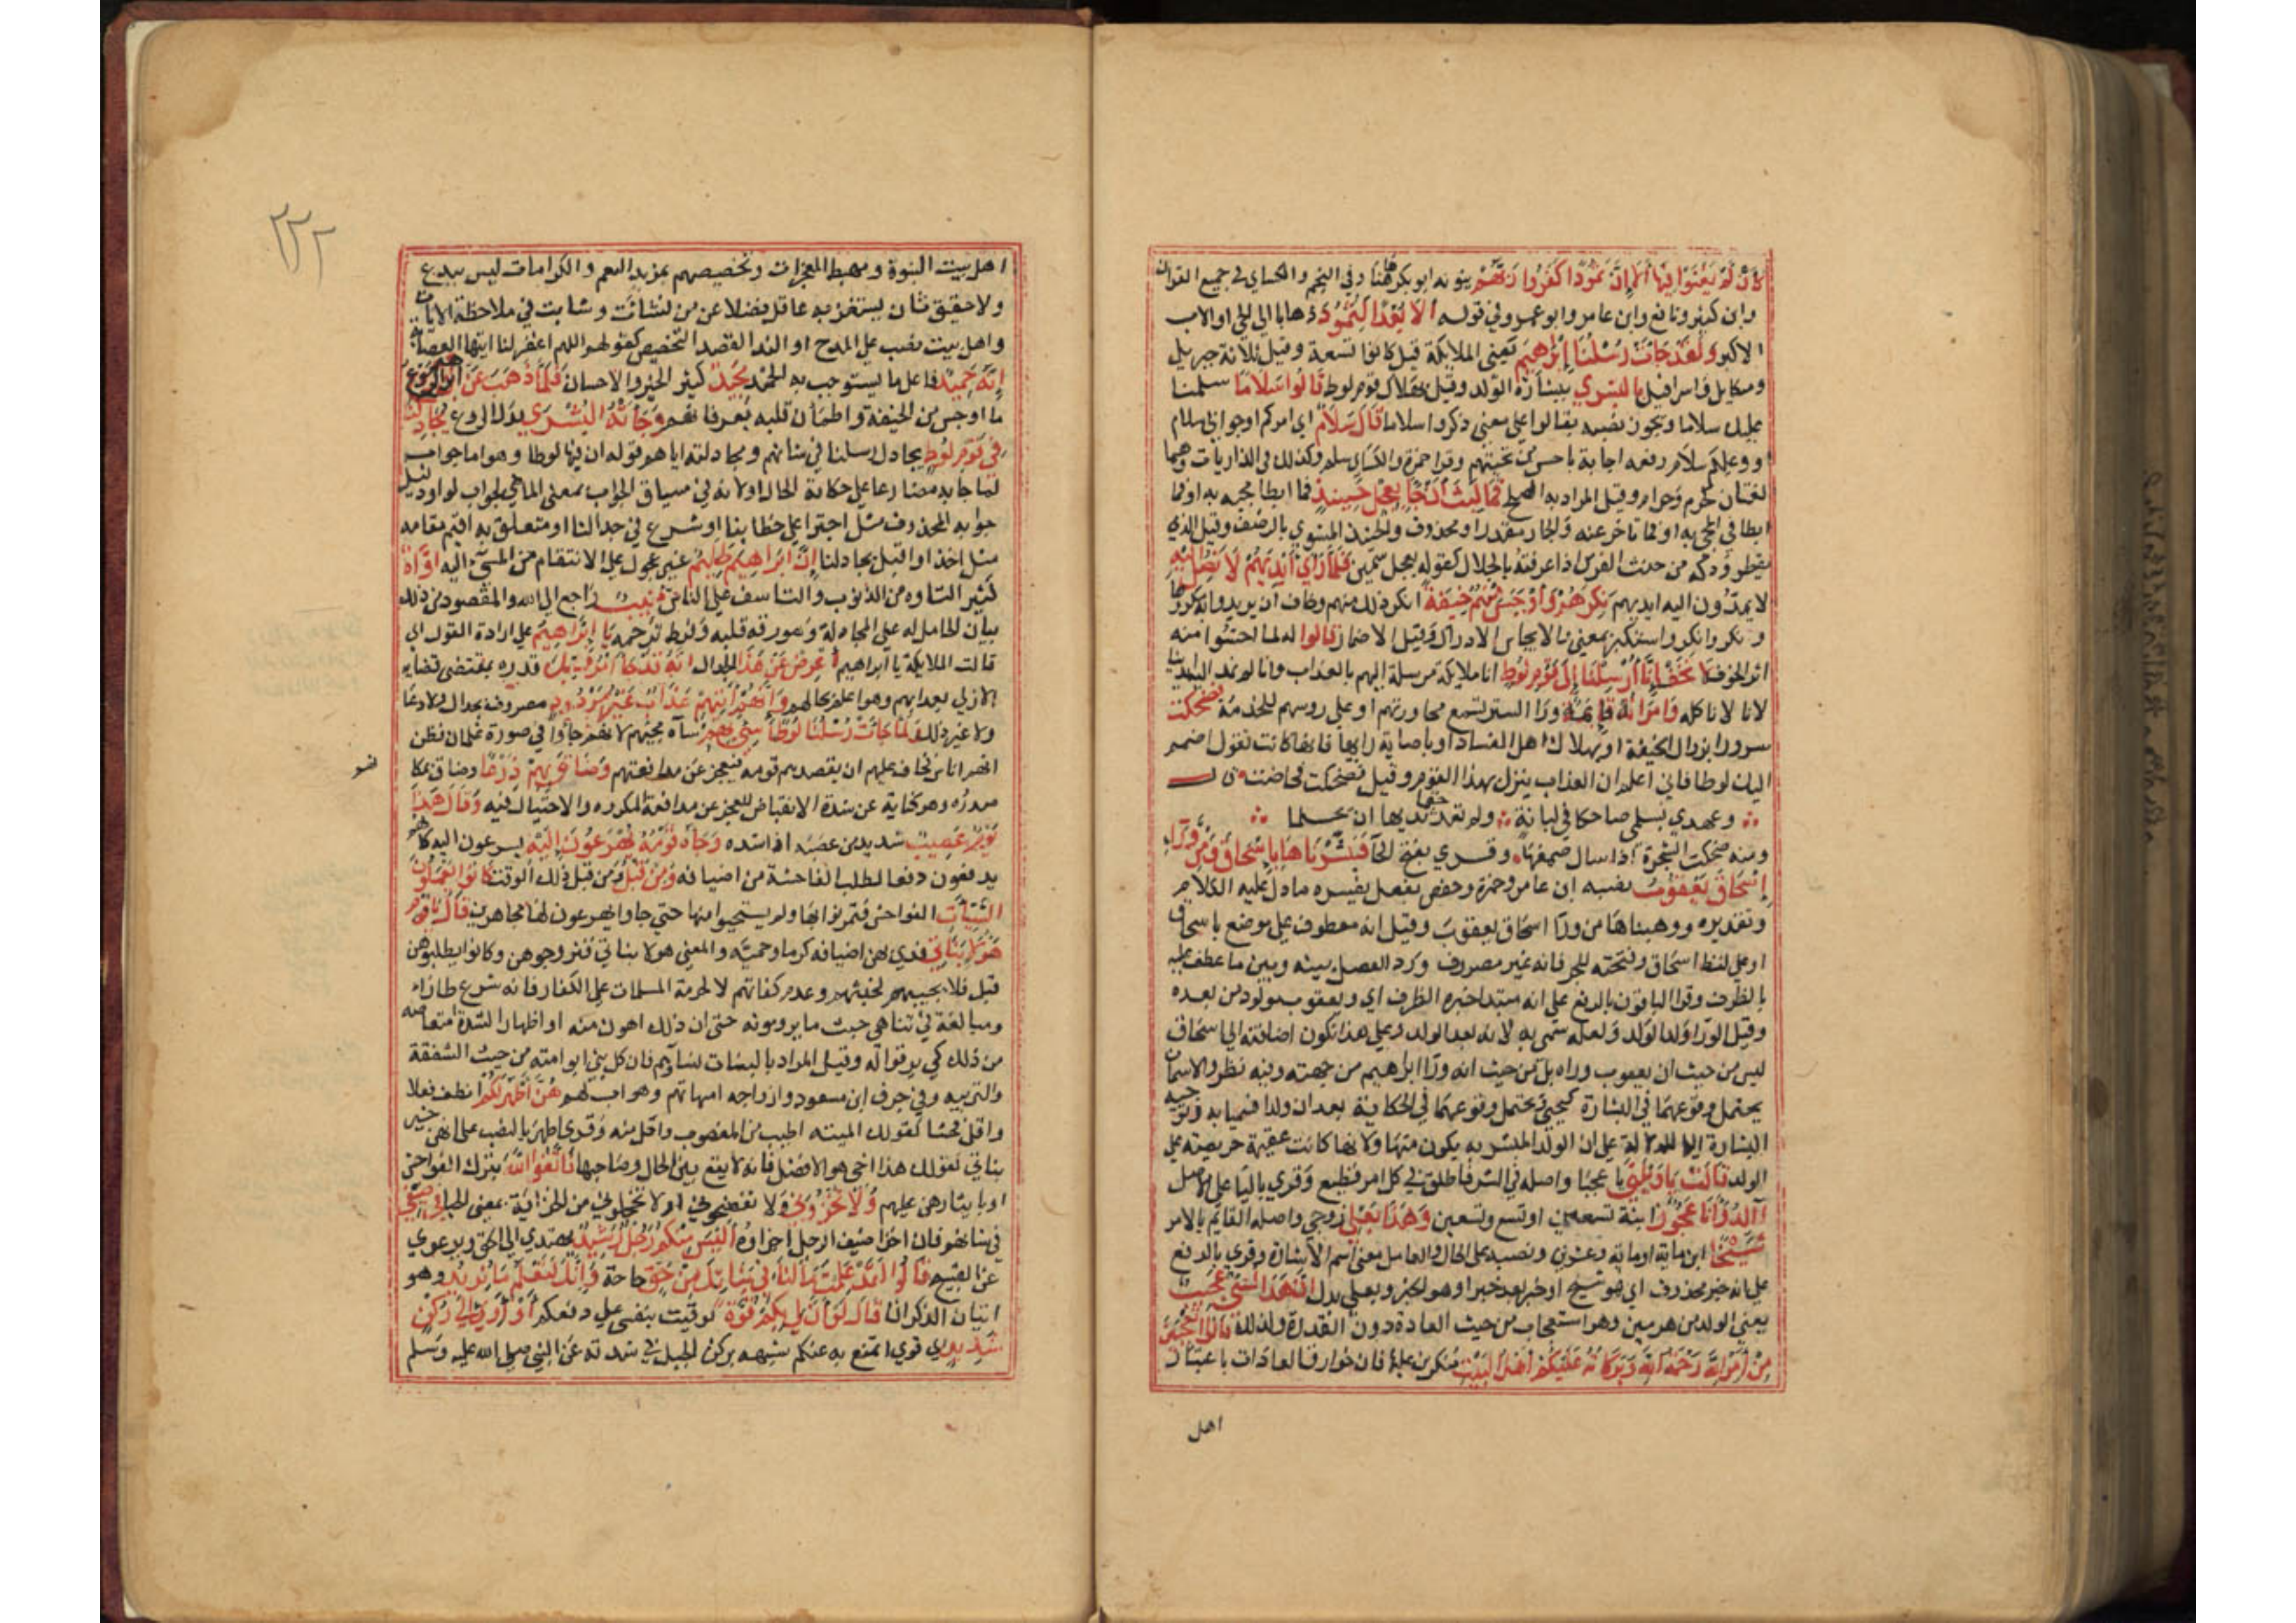 كَأَنْ لَمْ يَغْنَوْا فِيهَا أَلَا إِنَّ ثَمُودًا كَفَرُوا رَبَّهُمْ نونه ابو بكر ههنا وفي النجم والكساي في جميع القران
وابن كثير ونافع وابن عامر وابو عمرو في قوله أَلَا بُعْدًا لِثَمُودَ ذهابا الى الحي او الاب
الاكبر وَلَقَدْ جَاءَتْ رُسُلُنَا إِبْرَاهِيمَ يعني الملايكة قيل كانوا تسعة وقيل ثلاثة جبريل
وميكايل واسرافيل بِالْبُشْرَى ببشارة الولد وقيل بهلاك قوم لوط قَالُوا سَلَامًا سلمنا
عليك سلاما ويجوز نصبه بقالوا على معنى ذكروا سلاما قَالَ سَلَامٌ اي امركم او جوابي سلام
او وعليكم سلام رفعه اجابة باحسن من تحيتهم وقرا حمزة والكساي سلم وكذلك في الذاريات وهما
لغتان كحرم وحرام وقيل المراد به الصلح فَمَا لَبِثَ أَنْ جَاءَ بِعِجْلٍ حَنِيذٍ فما ابطا مجيه به او فما
ابطا في المجي به او فما تاخر عنه والجار مقدر او محذوف والحنيذ المشوي بالرضف وقيل الذي
يقطر ودكه من حنذت الفرس اذا عرقته بالجلال كقوله بعجل سمين فَلَمَّا رَأَى أَيْدِيَهُمْ لَا تَصِلُ إِلَيْهِ
لا يمدون اليه ايديهم نَكِرَهُمْ وَأَوْجَسَ مِنْهُمْ خِيفَةً انكر ذلك منهم وخاف ان يريدوا به مكروها
ونكر وانكر واستنكر بمعنى والايجاس الادراك وقيل الاضمار قالوا له لما احسوا منه
اثر الخوف لَا تَخَفْ إِنَّا أُرْسِلْنَا إِلَى قَوْمِ لُوطٍ انا ملايكة مرسلة اليهم بالعذاب وانا لم نمد اليه ايدينا
لانا لا ناكله وَامْرَأَتُهُ قَائِمَةٌ ورا الستر تسمع محاورتهم او على روسهم للخدمة فَضَحِكَتْ
سرورا بزوال الخيفة او بهلاك اهل الفساد او باصابة رايها فانها كانت تقول اضمم
اليك لوطا فاني اعلم ان العذاب ينزل بهذا القوم وقيل فضحكت فحاضت قال
وعهدي بسلمى ضاحكا في لبانة ولم تعد حقا ثديها ان تحلما
ومنه ضحكت الشجرة اذا سال صمغها وقري بفتح الحا فَبَشَّرْنَاهَا بِإِسْحَاقَ وَمِنْ وَرَاءِ
إِسْحَاقَ يَعْقُوبَ نصبه ابن عامر وحمزة وحفص بفعل يفسره ما دل عليه الكلام
وتقديره ووهبناها من ورا اسحاق يعقوب وقيل انه معطوف على موضع باسحاق
او على لفظ اسحاق وفتحته للجر فانه غير مصروف ورد للفصل بينه وبين ما عطف عليه
بالظرف وقرا الباقون بالرفع على انه مبتدا خبره الظرف اي ويعقوب مولود من بعده
وقيل الورا ولد الولد ولعله سمي به لانه بعد الولد وعلى هذا تكون اضافته الى اسحاق
ليس من حيث ان يعقوب وراه بل من حيث انه ورا ابراهيم من جهته وفيه نظر والاسمان
يحتمل وقوعهما في البشارة كيحيى ويحتمل وقوعهما في الحكاية بعد ان ولدا فسميا به وتوجيه
البشارة اليها للدلالة على ان الولد المبشر به يكون منها ولانها كانت عقيمة حريصة على
الولد قَالَتْ يَا وَيْلَتَى يا عجبا واصله في الشر فاطلق في كل امر فظيع وقري باليا على الاصل
أَأَلِدُ وَأَنَا عَجُوزٌ ابنة تسعين او تسع وتسعين وَهَذَا بَعْلِي زوجي واصله القايم بالامر
شَيْخًا ابن ماية او ماية وعشرين ونصبه على الحال والعامل معنى اسم الاشارة وقري بالرفع
على انه خبر محذوف اي هو شيخ او خبر بعد خبر او هو الخبر وبعلي بدل إِنَّ هَذَا لَشَيْءٌ عَجِيبٌ
يعني الولد من هرمين وهو استعجاب من حيث العادة دون القدرة ولذلك قَالُوا أَتَعْجَبِينَ
مِنْ أَمْرِ اللَّهِ رَحْمَةُ اللَّهِ وَبَرَكَاتُهُ عَلَيْكُمْ أَهْلَ الْبَيْتِ منكرين عليها فان خوارق العادات باعتبار
اهل
٢٢٢
اهل بيت النبوة ومهبط المعجزات وتخصيصهم بمزيد النعم والكرامات ليس ببدع
ولا حقيق بان يستغربه عاقل فضلا عن من نشات وشابت في ملاحظة الايات
واهل بيت نصب على المدح او الندا لقصد التخصيص كقولهم اللهم اغفر لنا ايتها العصابة
إِنَّهُ حَمِيدٌ فاعل ما يستوجب به الحمد مَجِيدٌ كثير الخير والاحسان فَلَمَّا ذَهَبَ عَنْ إِبْرَاهِيمَ الرَّوْعُ
ما اوجس من الخيفة واطمان قلبه بعرفانهم وَجَاءَتْهُ الْبُشْرَى بدل الروع يُجَادِلُنَا
فِي قَوْمِ لُوطٍ يجادل رسلنا في شانهم ومجادلته اياهم قوله ان فيها لوطا وهو اما جواب
لما جا به مضارعا على حكاية الحال او لانه في سياق الجواب بمعنى الماضي كجواب لو او دليل
جوابه المحذوف مثل اجترا على خطابنا او شرع في جدالنا او متعلق به اقيم مقامه
مثل اخذ او اقبل يجادلنا إِنَّ إِبْرَاهِيمَ لَحَلِيمٌ غير عجول على الانتقام من المسيء اليه أَوَّاهٌ
كثير التاوه من الذنوب والتاسف على الناس مُنِيبٌ راجع الى الله والمقصود من ذلك
بيان الحامل له على المجادلة وهو رقة قلبه وفرط ترحمه يَا إِبْرَاهِيمُ على ارادة القول اي
قالت الملايكة يا ابراهيم أَعْرِضْ عَنْ هَذَا الجدال إِنَّهُ قَدْ جَاءَ أَمْرُ رَبِّكَ قدره بمقتضى قضايه
الازلي بعذابهم وهو اعلم بحالهم وَإِنَّهُمْ آتِيهِمْ عَذَابٌ غَيْرُ مَرْدُودٍ مصروف بجدال ولا دعا
ولا غير ذلك وَلَمَّا جَاءَتْ رُسُلُنَا لُوطًا سِيءَ بِهِمْ ساه مجيهم لانهم جاوا في صورة غلمان فظن
انهم اناس فخاف عليهم ان يقصدهم قومه فيعجز عن مدافعتهم وَضَاقَ بِهِمْ ذَرْعًا وضاق بمكانهم
صدره وهو كناية عن شدة الانقباض للعجز عن مدافعة المكروه والاحتيال فيه وَقَالَ هَذَا
يَوْمٌ عَصِيبٌ شديد من عصبه اذا شده وَجَاءَهُ قَوْمُهُ يُهْرَعُونَ إِلَيْهِ يسرعون اليه كانهم
يدفعون دفعا لطلب الفاحشة من اضيافه وَمِنْ قَبْلُ ومن قبل ذلك الوقت كَانُوا يَعْمَلُونَ
السَّيِّئَاتِ الفواحش فتمرنوا بها ولم يستحيوا منها حتى جاوا يهرعون لها مجاهرين قَالَ يَا قَوْمِ
هَؤُلَاءِ بَنَاتِي فدى بهن اضيافه كرما وحمية والمعنى هولا بناتي فتزوجوهن وكانوا يطلبوهن
قبل فلا يجيبهم لخبثهم وعدم كفاتهم لا لحرمة المسلمات على الكفار فانه شرع طارا
ومبالغة في تناهي خبث ما يرومونه حتى ان ذلك اهون منه او اظهارا لشدة امتعاضه
من ذلك كي يرقوا له وقيل المراد بالبنات نساوهم فان كل نبي ابو امته من حيث الشفقة
والتربيه وفي حرف ابن مسعود وازواجه امهاتهم وهو اب لهم هُنَّ أَطْهَرُ لَكُمْ انظف فعلا
واقل فحشا كقولك الميته اطيب من المغصوب واقل منه وقري اطهر بالنصب على ان هن خبر
بناتي كقولك هذا اخي هو الافضل فانه لا يقع بين الحال وصاحبها فَاتَّقُوا اللَّهَ بترك الفواحش
او بايثارهن عليهم وَلَا تُخْزُونِ ولا تفضحوني او لا تخجلوني من الخزاية بمعنى الحيا فِي ضَيْفِي
في شانهم فان اخزا ضيف الرجل اخزاوه أَلَيْسَ مِنْكُمْ رَجُلٌ رَشِيدٌ يهتدي الى الحق ويرعوي
عن القبيح قَالُوا لَقَدْ عَلِمْتَ مَا لَنَا فِي بَنَاتِكَ مِنْ حَقٍّ حاجة وَإِنَّكَ لَتَعْلَمُ مَا نُرِيدُ وهو
اتيان الذكران قَالَ لَوْ أَنَّ لِي بِكُمْ قُوَّةً لو قويت بنفسي على دفعكم أَوْ آوِي إِلَى رُكْنٍ
شَدِيدٍ الى قوي اتمنع به عنكم شبهه بركن الجبل في شدته عن النبي صلى الله عليه وسلم